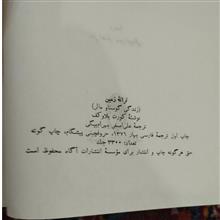 ترانهٔ زمین
(زندگی گوستاو مالر)
نوشتهٔ کورت بلاوکف
ترجمهٔ علی‌اصغر بهرام‌بیگی
چاپ اول ترجمهٔ فارسی بهار ۱۳۷۱، حروفچینی پیشگام، چاپ گونه
تعداد: ۳۳۰۰ جلد
حق هرگونه چاپ و انتشار برای مؤسسهٔ انتشارات آگاه محفوظ است